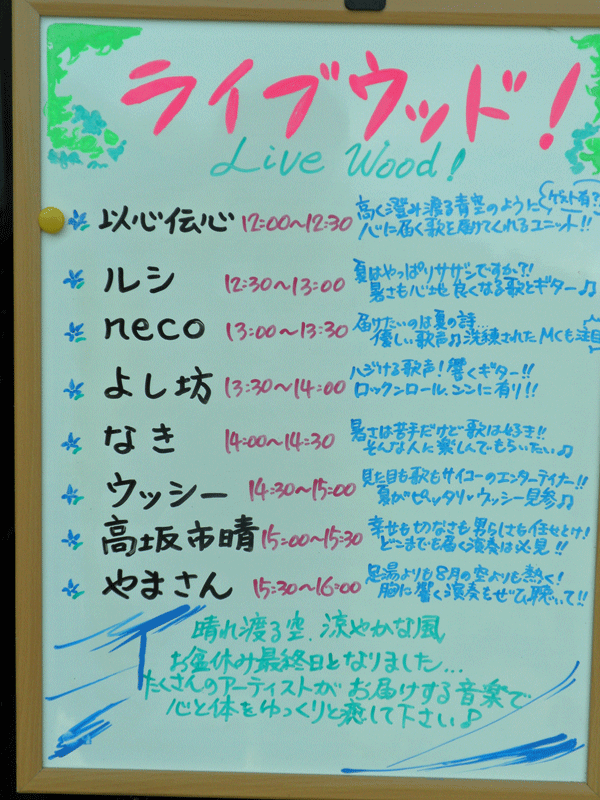 ライブウッド!
Live Wood!
以心伝心 12:00~12:30 高く澄み渡る青空のように
心に届く歌を届けてくれるユニット!!
ゲスト有?
ルシ 12:30~13:00 夏はやっぱりサザンですか?!
暑さも心地良くなる歌とギター♫
neco 13:00~13:30 届けたいのは夏の詩...
優しい歌声♫洗練されたMCも注目
よし坊 13:30~14:00 ハジける歌声!響くギター!!
ロックンロール、ここに有り!!
なき 14:00~14:30 暑さは苦手だけど歌は好き!!
そんな人に楽しんでもらいたい♫
ウッシー 14:30~15:00 見た目も歌もサイコーのエンターティナー!!
夏がピッタリ♥ウッシー見参♫
高坂市晴 15:00~15:30 幸せも切なさも男らしさも任せとけ!
どこまでも届く演奏は必見!!
やまさん 15:30~16:00 足湯よりも8月の空よりも熱く!
胸に響く演奏もぜひ聴いて!!
晴れ渡る空、涼やかな風
お盆休み最終日となりました...
たくさんのアーティストがお届けする音楽で
心と体をゆっくりと癒して下さい♪